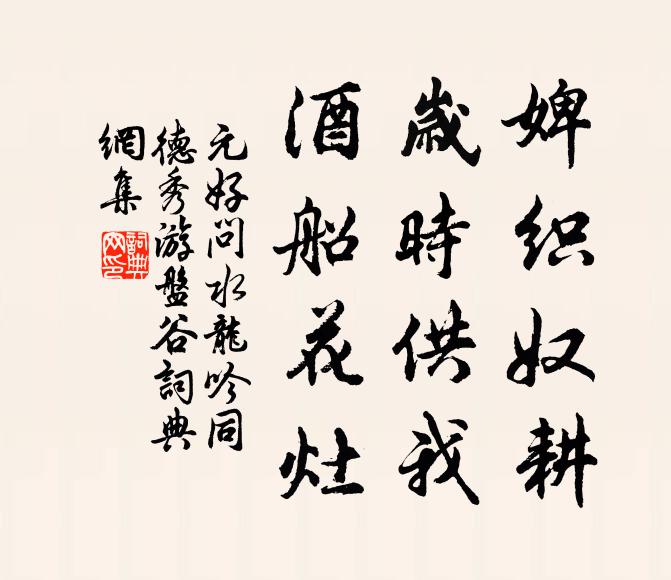 婢织奴耕
歲時供我
酒船花灶
元好问水龍吟同
德秀游盤谷詞典
網集
詞典
网印